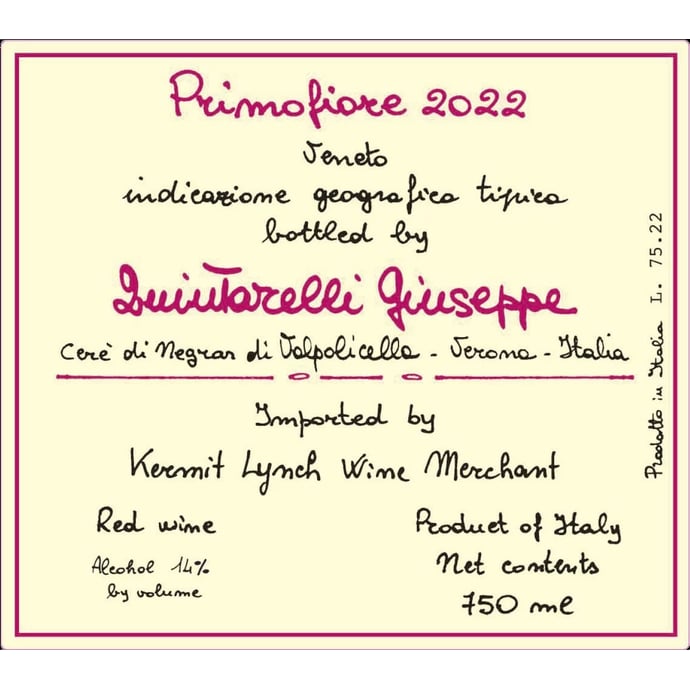 Primofiore 2022
Veneto
indicazione geografica tipica
bottled by
Quintarelli Giuseppe
Cerè di Negrar di Valpolicella - Verona - Italia
Imported by
Kermit Lynch Wine Merchant
Red wine
Alcohol 14%
by volume
Product of Italy
Net contents
750 ml
Prodotto in Italia L. 75.22